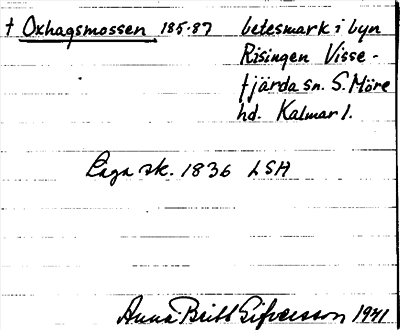 † Oxhagsmossen 185.87 betesmark i byn
Risingen Visse-
fjärda sn. S. Möre
hd. Kalmar l.
Laga sk. 1836 LSH
Anna-Britt Sifversson 1941